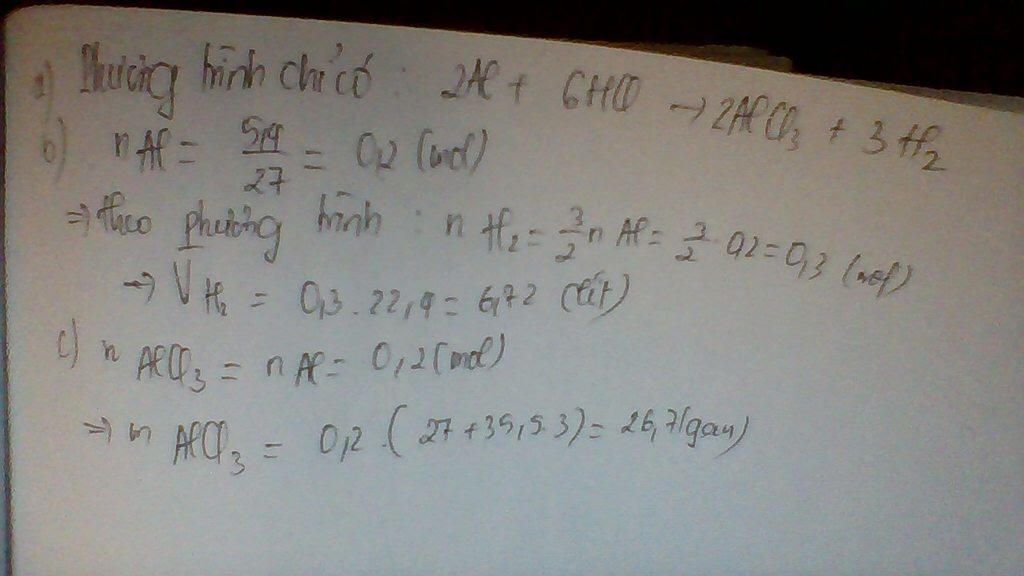 a) Phương trình chỉ có : 2Al + 6HCl → 2AlCl3 + 3H2
b) n Al = 5,4/27 = 0,2 (mol)
=> theo phương trình : n H2 = 3/2 n Al = 3/2 . 0,2 = 0,3 (mol)
→ V H2 = 0,3 . 22,4 = 6,72 (lít)
c) n AlCl3 = n Al = 0,2 (mol)
=> m AlCl3 = 0,2 . ( 27 + 35,5.3) = 26,7 (gam)